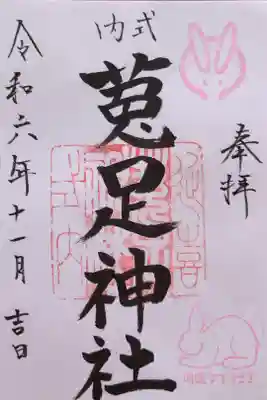 奉拝
式内
菟足神社
令和六年十一月吉日